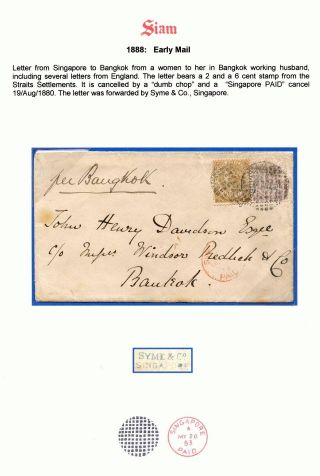 Siam
1888: Early Mail
Letter from Singapore to Bangkok from a women to her in Bangkok working husband,
including several letters from England. The letter bears a 2 and a 6 cent stamp from the
Straits Settlements. It is cancelled by a "dumb chop" and a "Singapore PAID" cancel
19/Aug/1880. The letter was forwarded by Syme & Co., Singapore.
per Bangkok.
John Henry Davidson Esqre
c/o Messrs Windsor Redlich & Co
Bankok.
PAID
SYME & Co
SINGA
SINGAPORE
A
MY 20
83
PAID